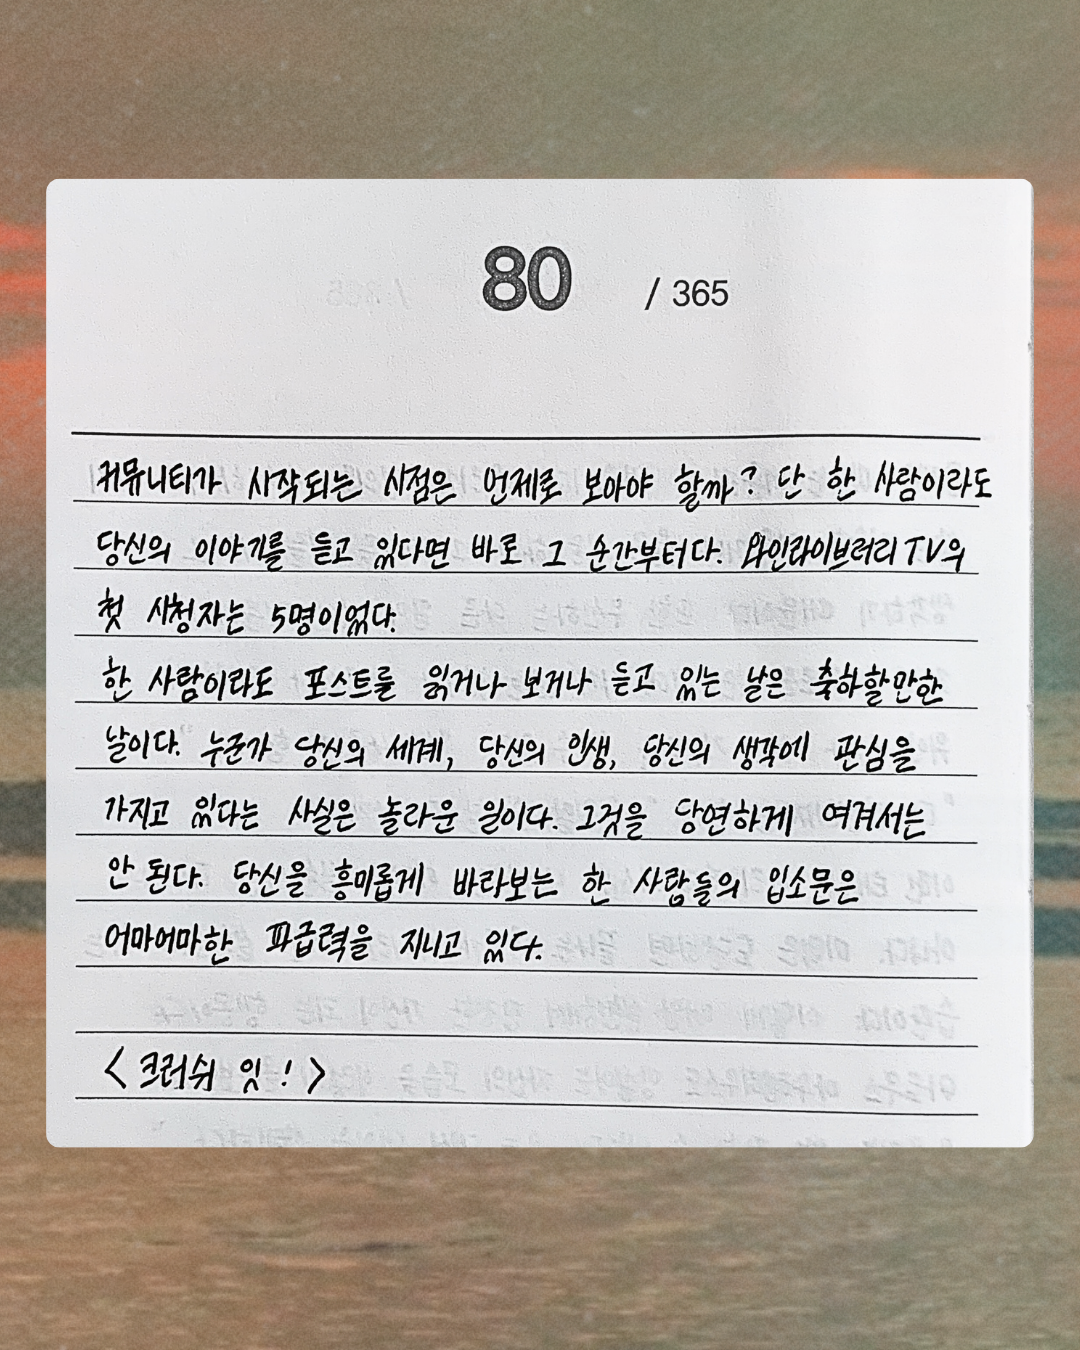 80 / 365
커뮤니티가 시작되는 시점은 언제로 보아야 할까? 단 한 사람이라도
당신의 이야기를 듣고 있다면 바로 그 순간부터다. 와인라이브러리 TV의
첫 시청자는 5명이었다.
한 사람이라도 포스트를 읽거나 보거나 듣고 있는 날은 축하할만한
날이다. 누군가 당신의 세계, 당신의 인생, 당신의 생각에 관심을
가지고 있다는 사실은 놀라운 일이다. 그것을 당연하게 여겨서는
안 된다. 당신을 흥미롭게 바라보는 한 사람들의 입소문은
어마어마한 파급력을 지니고 있다.
<크러쉬 잇!>